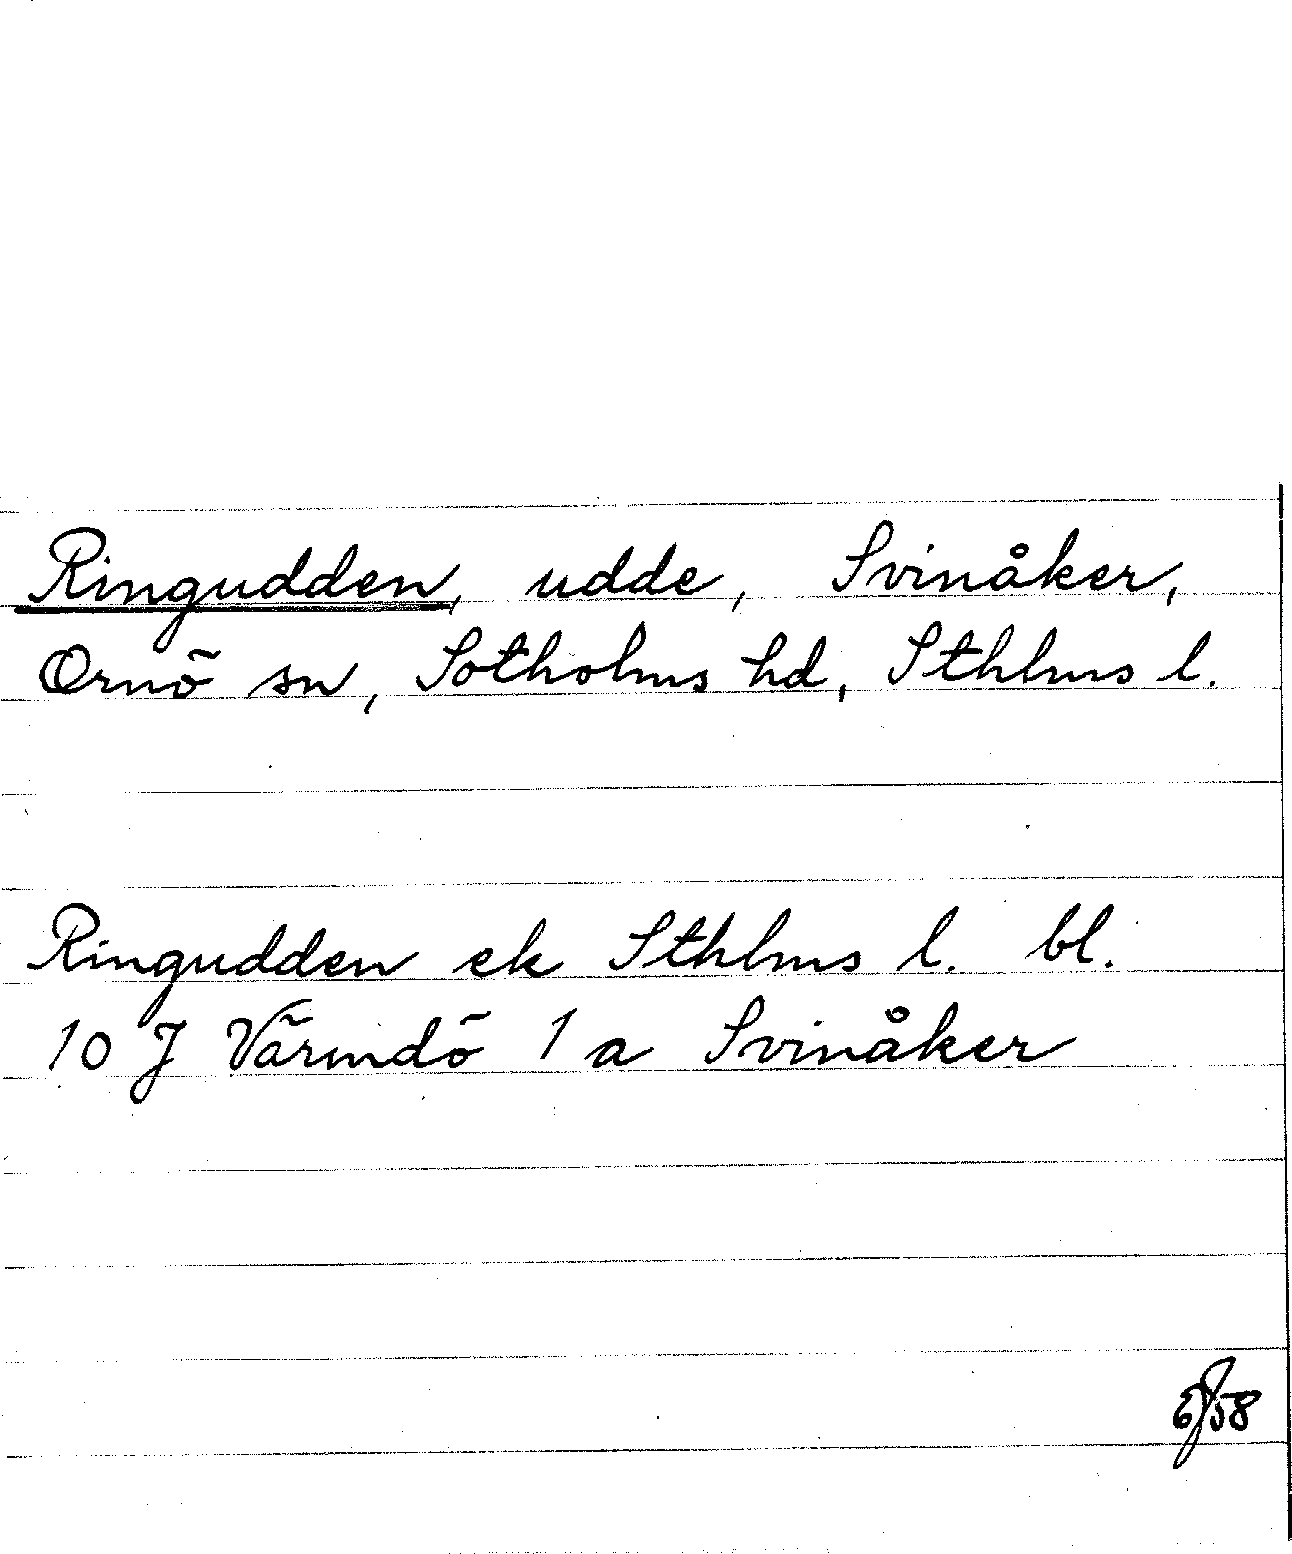 Ringudden, udde, Svinåker,
Ornö sn, Sotholms hd, Sthlms l.
Ringudden ek Sthlms l. bl.
10 J Värmdö 1 a Svinåker
58